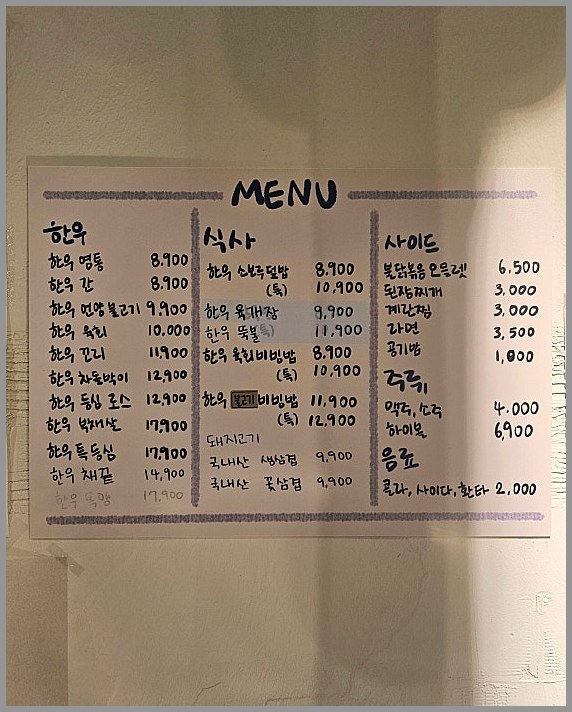 MENU
한우
한우 염통 8,900
한우 간 8,900
한우 언양불고기 9,900
한우 육회 10.000
한우 꼬리 11,900
한우 차돌박이 12,900
한우 등심 로스 12,900
한우 부채살 17,900
한우 특등심 17,900
한우 채끝 14,900
한우 17,900
식사
한우 소보루덮밥 8.900
(특) 10,900
한우 육개장 9,900
한우 뚝불 11,900
한우 육회비빔밥 8,900
(특) 10,900
한우 불고기 비빔밥 11,900
(특) 12,900
돼지고기
국내산 생삼겹 9,900
국내산 꽃삼겹 9,900
사이드
불닭볶음 오믈렛 6.500
된장찌개 3,000
계란찜 3,000
라면 3,500
공기밥 1,000
주류
맥주, 소주 4.000
하이볼 6,900
음료
콜라, 사이다, 환타 2,000